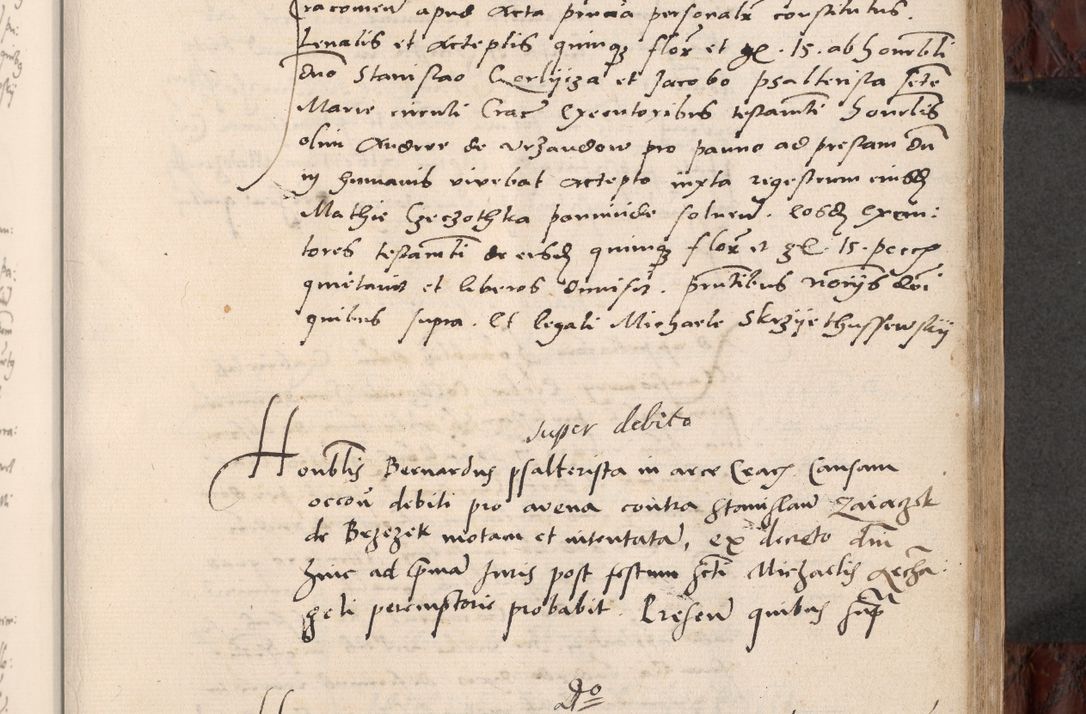 racomien apud Acta pnaa personalr constitutus.
Levatis et Acceptis quinq flor et gr. 15. ab honorbli
dno Stanislao et Jacobo psalterista sctae
Marie circuli Crac Executoribus testamti honorblis
olim Andree de Vrzandow pro panno ad prestam dn
in humanis vivebat Accepto iuxta regestrum eiusd
Mathie Czeczothka panniide soluen. eosd execu:
tores testamti de eisd quinq flor et gr. 15. percep
quietavit et liberos dimisit. pntibus
quibus supra. Et legali Michaele Skrzyethussewsky
super debito
Honorblis Bernardus psalterista in arce Crac Causam
occon debiti pro avena contra Stanislaum Zaiaczek
de Brzezek motam et intentatam, ex decreto dni
hinc ad pmam Juris post festum scti Michaelis Archa:
geli peremptorie probabit. Presen quibus supr
Ado